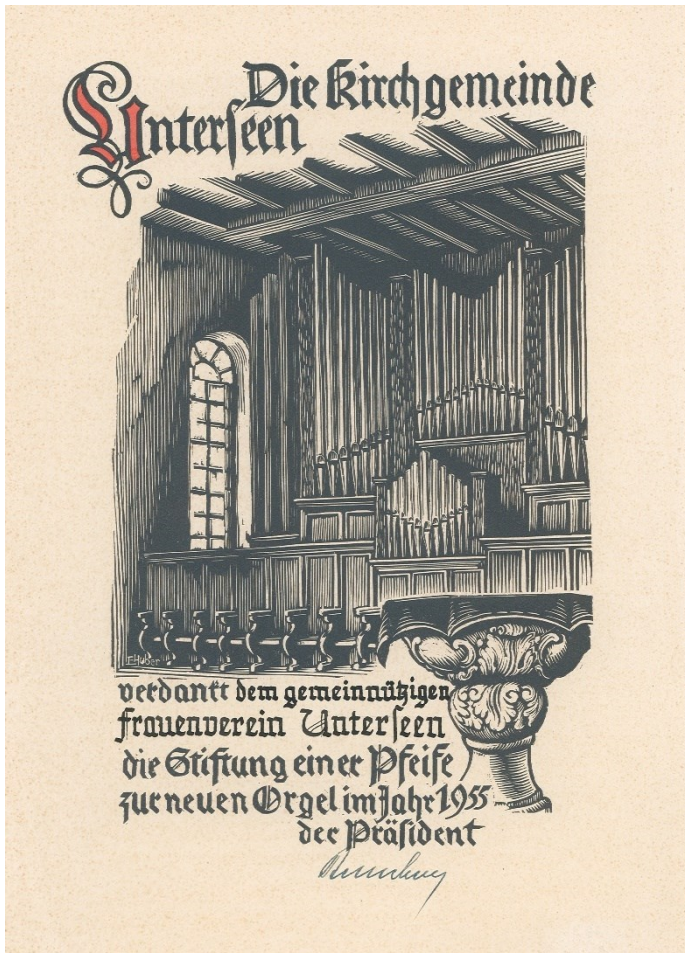 Die Kirchgemeinde
Unterseen
F. Huber
verdankt dem gemeinnützigen
Frauenverein Unterseen
die Stiftung einer Pfeife
zur neuen Orgel im Jahr 1955
der Präsident